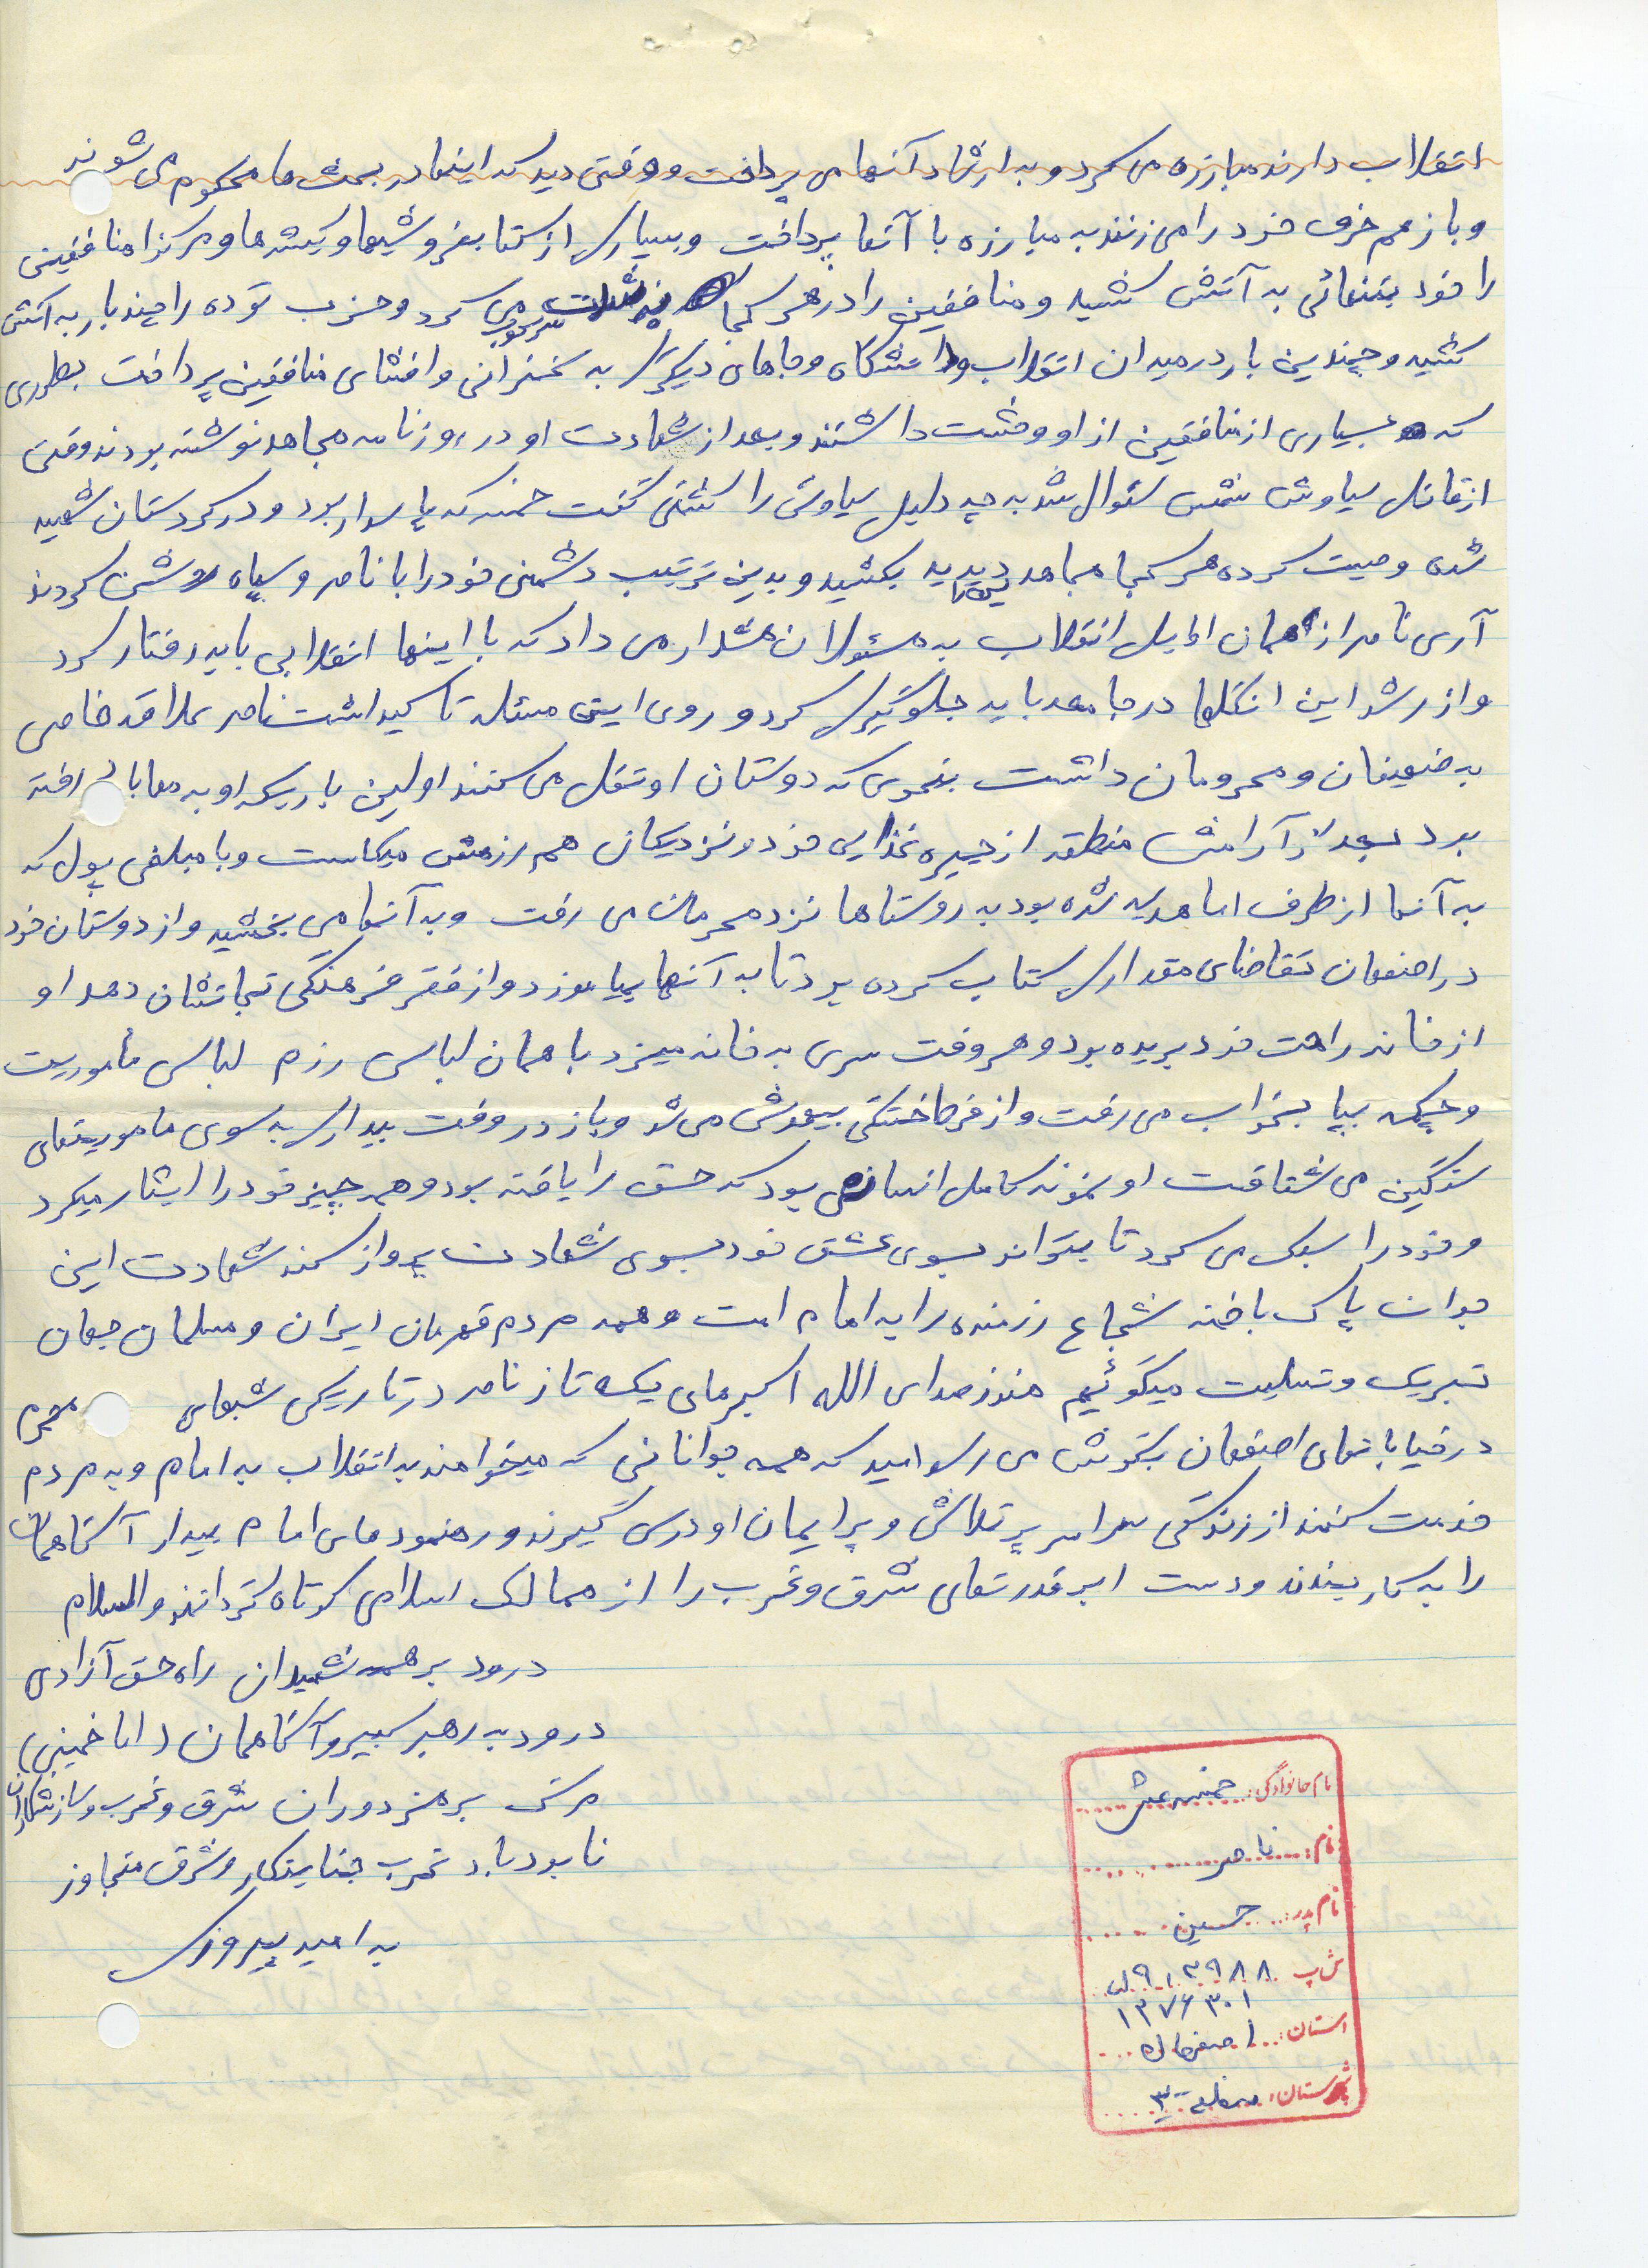 انقلاب دارند مبارزه می کرد و به ارشاد آنها می پرداخت و وقتی دید که اینها در بحث ها محکوم می شوند
و باز هم حرف خود را می زنند به مبارزه با آنها پرداخت و بسیاری از کتابفروشیها و مرکز منافقین
را خود بتنهائی به آتش کشید و منافقین را در هر کجا سرکوب می کرد و حزب توده را چند بار به آتش
کشید و چندین بار در میدان انقلاب و دانشگاه و جاهای دیگر به سخنرانی و افشای منافقین پرداخت بطوری
که بسیاری از منافقین از او وحشت داشتند و بعد از شهادت او در روزنامه مجاهد نوشته بودند وقتی
از قاتل سیاوش شمس سئوال شد به چه دلیل سیاوش را کشتی گفت حمزه که پاسدار بود و در کردستان شهید
شده وصیت کرده هر کجا مجاهد دیدید بکشید و بدین ترتیب دشمنی خود را با ناصر و سپاه روشن کردند
آری ناصر از همان اوایل انقلاب به مسئولان هشدار می داد که با اینها انقلابی باید رفتار کرد
و از رشد این انگلها در جامعه باید جلوگیری کرد و روی این مسئله تاکید داشت ناصر علاقه خاصی
به ضعیفان و محرومان داشت بنحوی که دوستان او نقل می کنند اولین باریکه او به مهاباد رفته
بود بعد از آرامش منطقه از جیره غذایی خود و نزدیکان هم رزمش میکاست و با مبلغی پول که
به آنها از طرف امام هدیه شده بود به روستاها نزد محرومان می رفت و به آنها می بخشید و از دوستان خود
در اصفهان تقاضای مقداری کتاب کرده بود تا به آنها بیاموزد و از فقر فرهنگی نجاتشان دهد او
از خانه راحت خود بریده بود و هر وقت سری به خانه میزد با همان لباس رزم لباس مأموریت
و چکمه بپا بخواب می رفت و از فرط خستگی بیهوش می شد و باز در وقت بیداری به سوی ماموریتهای
سنگین می شتافت او نمونه کامل انسانی بود که حق را یافته بود و همه چیز خود را ایثار میکرد
و خود را سبک می کرد تا بتواند بسوی عشق خود بسوی شهادت پرواز کند شهادت این
جوان پاک باخته شجاع رزمنده را به امام امت و همه مردم قهرمان ایران و مسلمان جهان
تبریک و تسلیت میگوئیم هنوز صدای الله اکبرهای یکه تاز ناصر در تاریکی شبهای محرم
در خیابانهای اصفهان بگوش می رسد امید که همه جوانانی که میخواهند به انقلاب به امام و به مردم
خدمت کنند از زندگی سراسر پر تلاش و پر ایمان او درس گیرند و رهنمودهای امام بیدار آگاهمان
را به کار بندند و دست ابر قدرتهای شرق و غرب را از ممالک اسلامی کوتاه گردانند والسلام
درود بر همه شهیدان راه حق آزادی
درود به رهبر کبیر و آگاهمان (امام خمینی)
مرگ بر مزدوران شرق و غرب و سازشکاران
نابود باد غرب جنایتکار و شرق متجاوز
به امید پیروزی
نام خانوادگی:
نام: ناصر
نام پدر: حسین
ش پ ۹۰۳۹۸۸
۱۳۷۶۳۰۱
استان: اصفهان
شهرستان: ۳